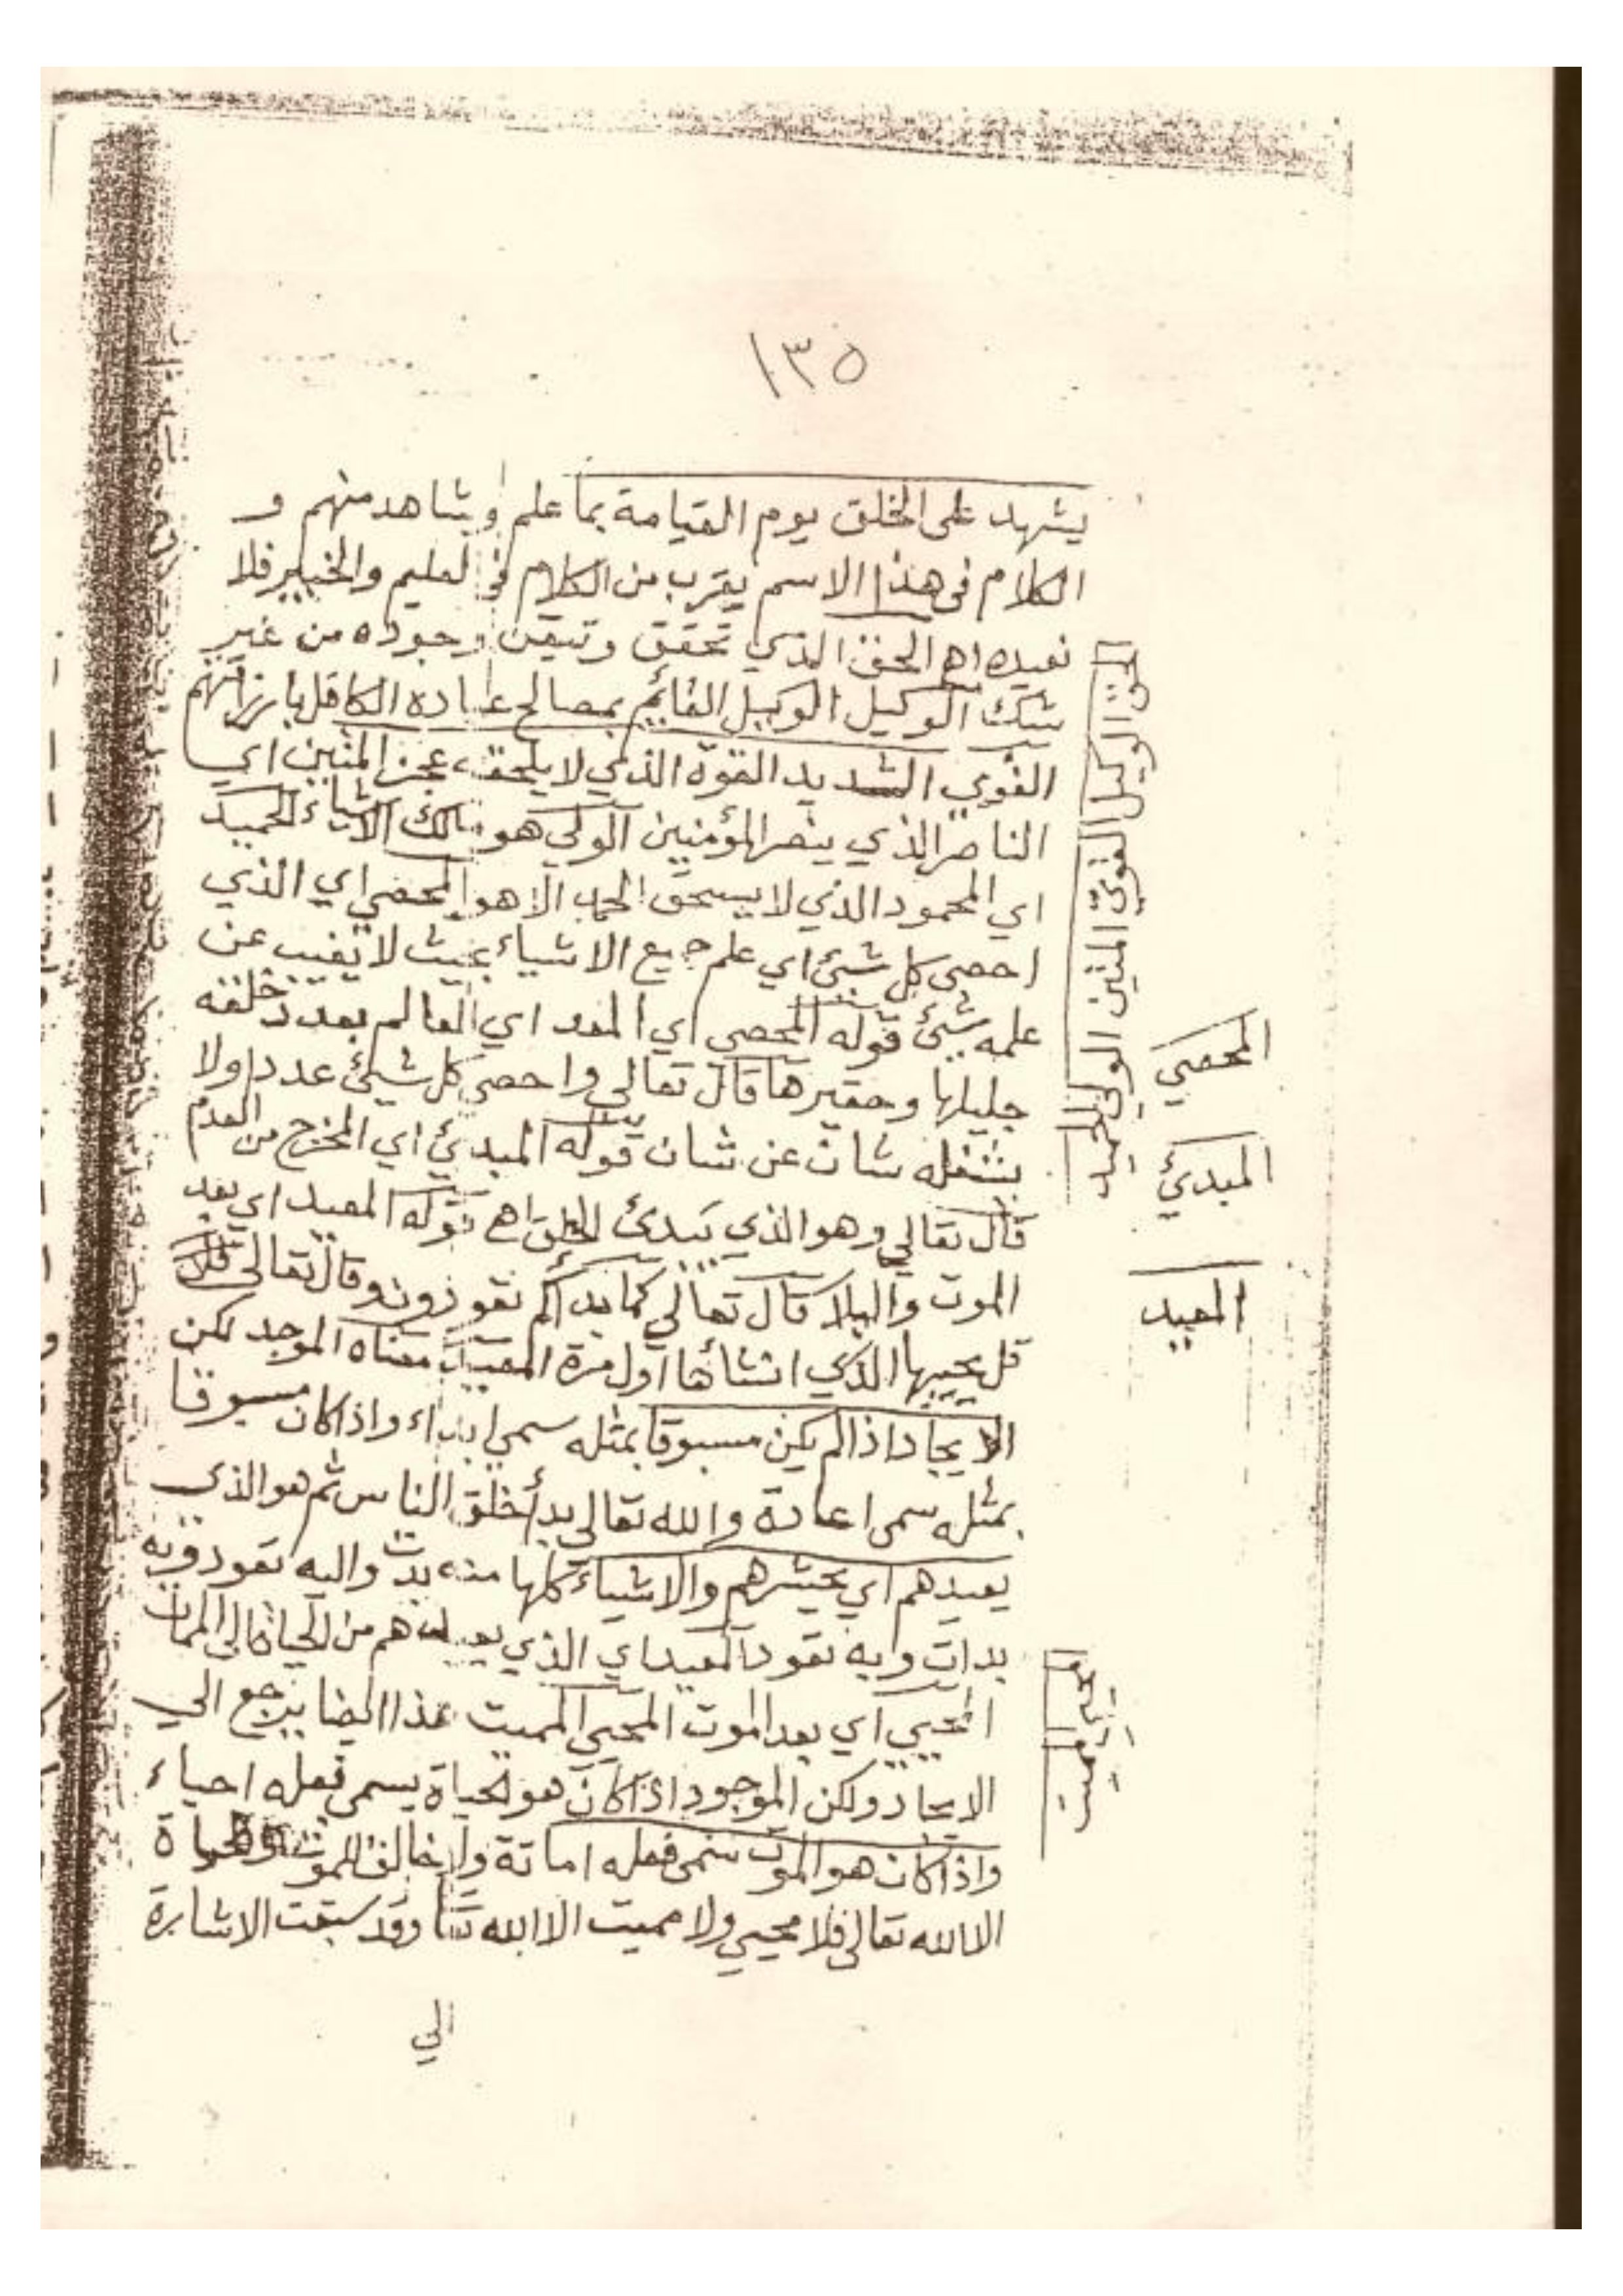 ١٣٥
يشهد على الخلق يوم القيامة بما علم وشاهد منهم و
الكلام في هذا الاسم يقرب من الكلام في العليم والخبير فلا
نعيده اهـ الحق الذي تحقق وتيقن وجوده من غير
شك الوكيل الوكيل القائم بمصالح عباده الكافل بارزاقهم
القوي الشديد القوة الذي لا يلحقه عجز المتين اي
الناصر الذي ينصر المؤمنين الولي هو مالك الاشياء الحميد
اي المحمود الذي لا يستحق الحمد الا هو المحصي اي الذي
احصى كل شيئ اي علم جميع الاشياء بحيث لا يغيب عن
علمه شيئ قوله المحصي اي المعد اي العالم بعدد خلقه
جليلها وحقيرها قال تعالى واحصى كل شيئ عددا ولا
يشغله شان عن شان قوله المبدئ اي المخرج من العدم
قال تعالي وهو الذي يبدئ الخلق اهـ قوله المعيد اي بعد
الموت والبلا قال تعالي كما بدأكم تعودون وقال تعالى
قل يحييها الذي انشأها اول مرة المعيد معناه الموجد لكن
الايجاد اذا لم يكن مسبوقا بمثله سمي ابداء واذا كان مسبوقا
بمثله سمى اعادة والله تعالى بدأ خلق الناس ثم هو الذي
يعيدهم اي يحشرهم والاشياء كلها منه بدت واليه تعود وبه
بدات وبه تعود المعيد اي الذي يعيدهم من الحياة الى الممات
المحيي اي بعد الموت المحيي المميت هذا ايضا يرجع الي
الايجاد ولكن الموجود اذا كان هو الحياة يسمى فعله احياء
واذا كان هو الموت سمى فعله اماتة ولا خالق للموت والحياة
الا الله تعالى فلا محيي ولا مميت الا الله تعالى وقد سبقت الاشارة
الي
الحق الوكيل القوي المتين الولي الحميد
المحصي
المبدئ
المعيد
المحيي المميت